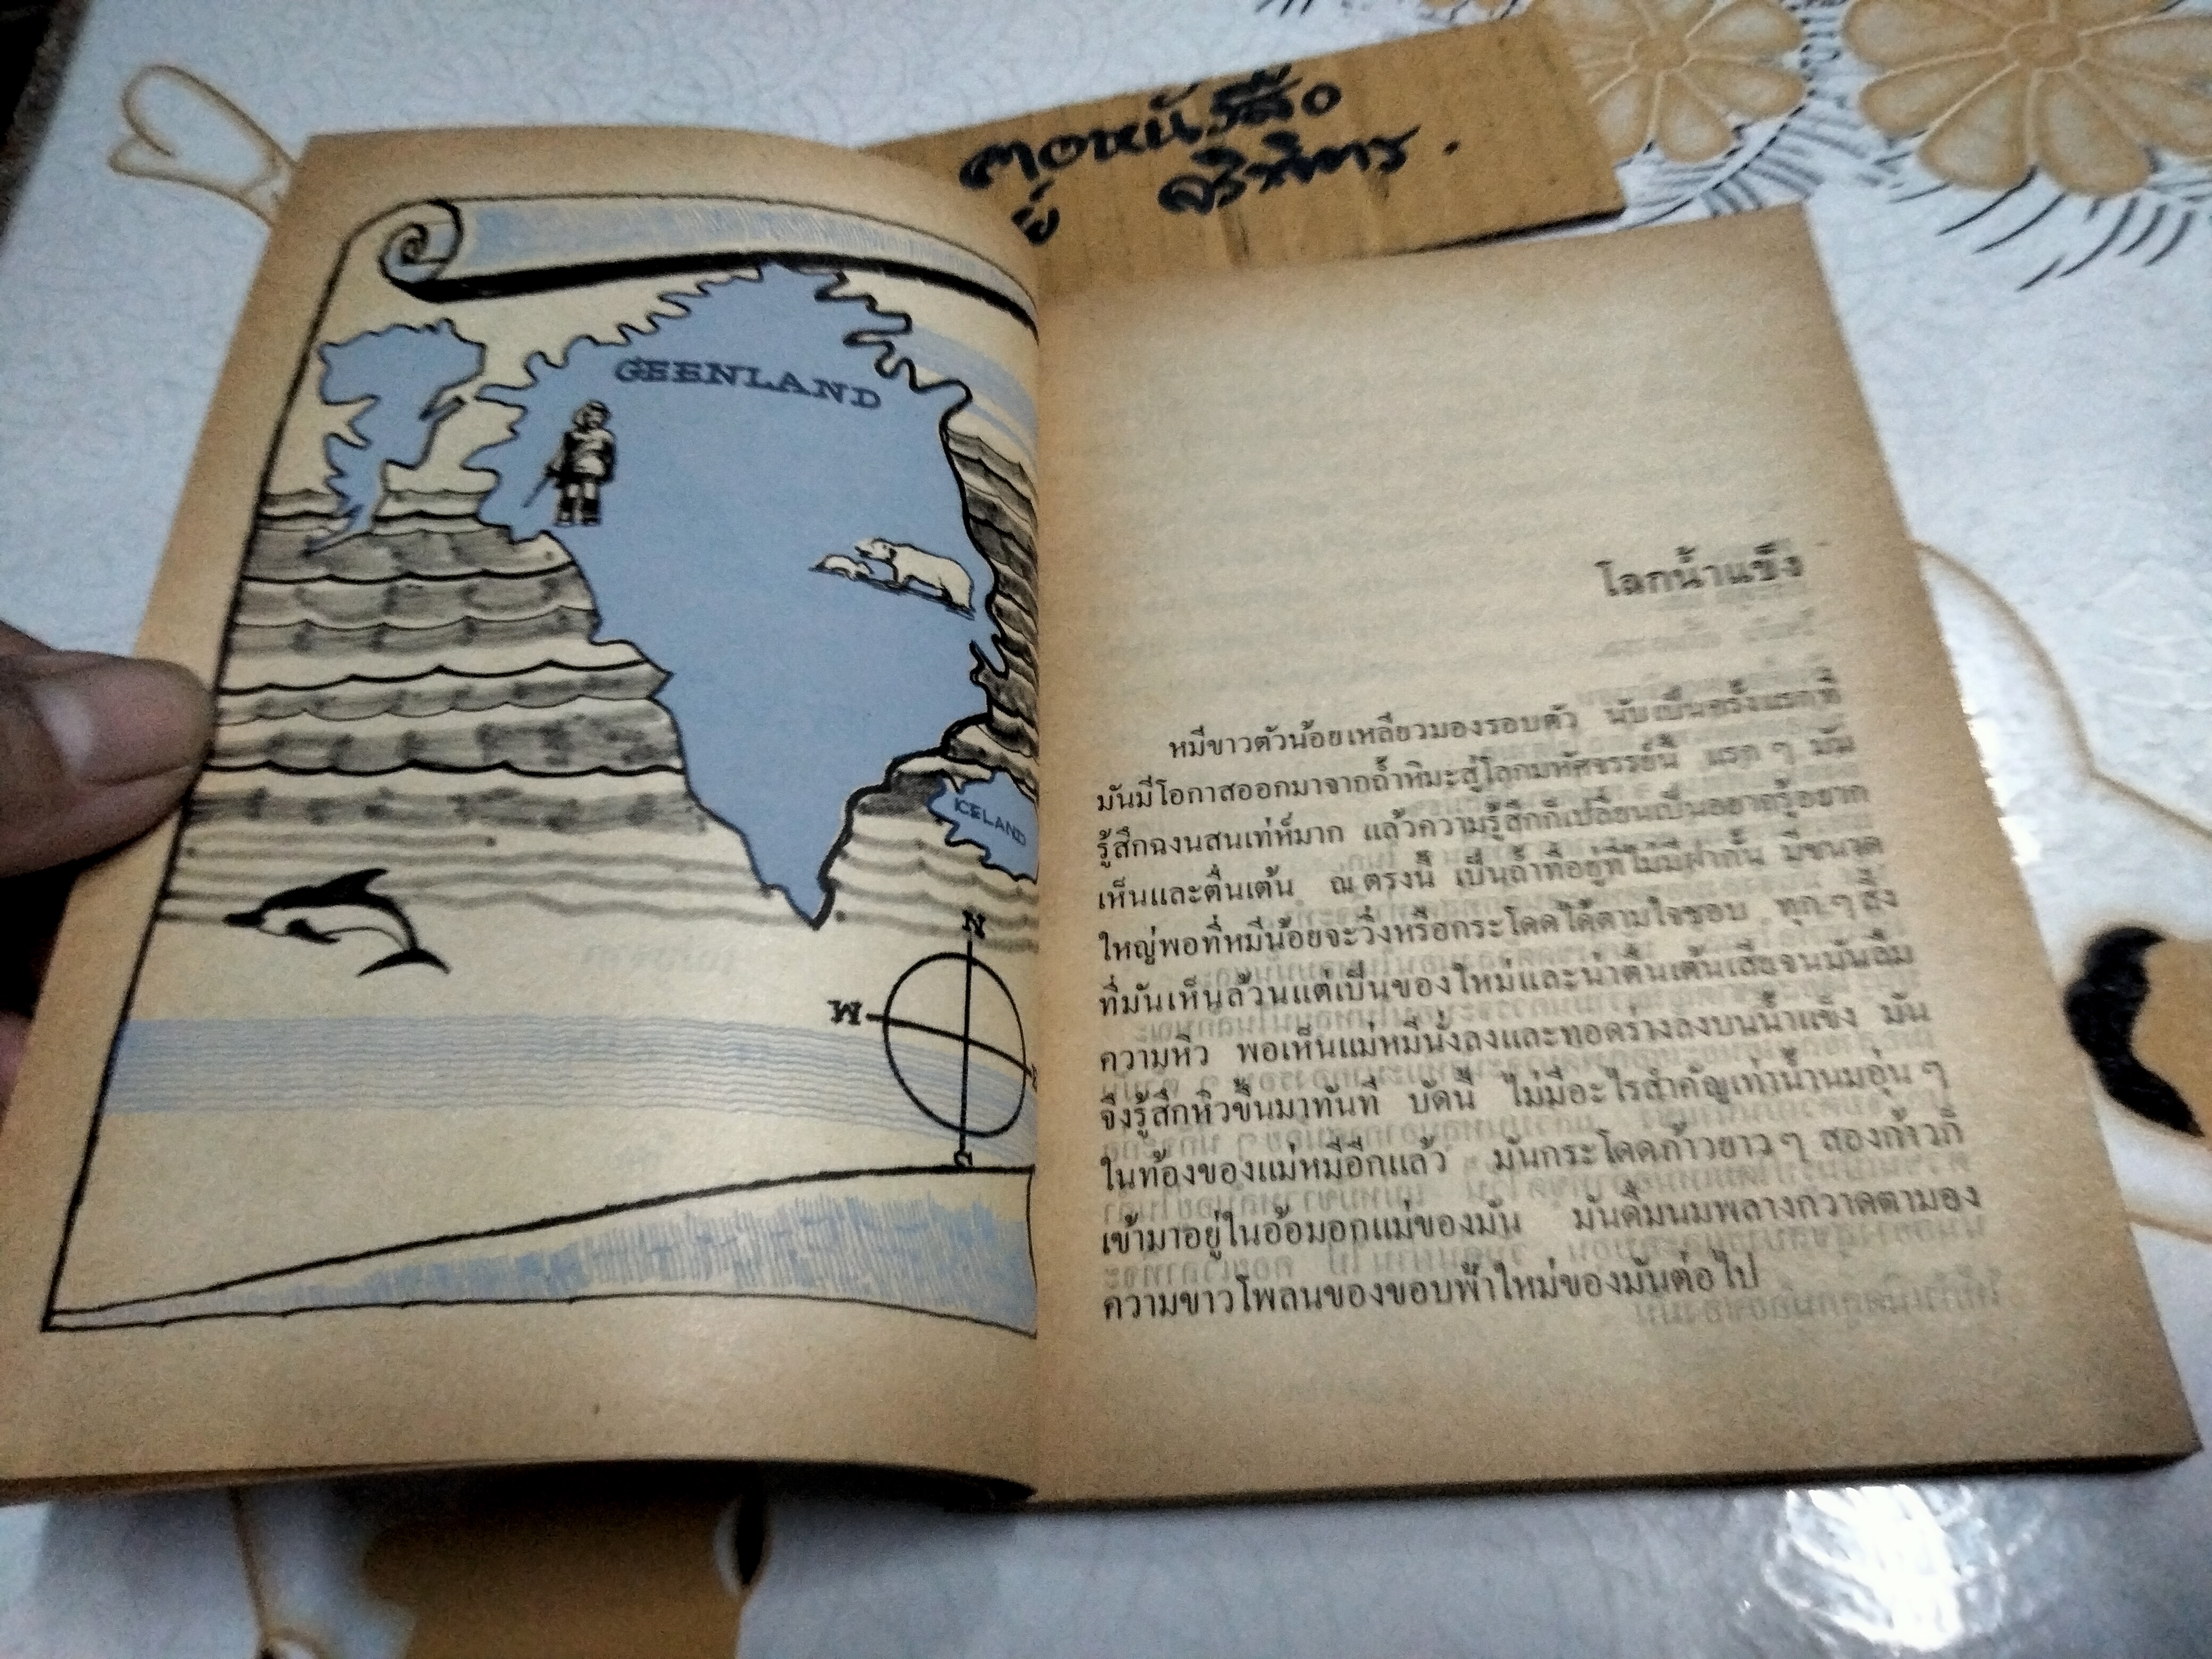 GEENLAND
ICELAND
N
W
S
โลกน้ำแข็ง
หมีขาวตัวน้อยเหลียวมองรอบตัว นับเป็นครั้งแรกที่
มันมีโอกาสออกมาจากถ้ำหิมะสู่โลกมหัศจรรย์นี้ แรก ๆ มัน
รู้สึกฉงนสนเท่ห์มาก แล้วความรู้สึกก็เปลี่ยนเป็นอยากรู้อยาก
เห็นและตื่นเต้น ณ ตรงนี้ เป็นถ้ำที่อยู่ที่ไม่มีฝากั้น มีขนาด
ใหญ่พอที่หมีน้อยจะวิ่งหรือกระโดดได้ตามใจชอบ ทุก ๆ สิ่ง
ที่มันเห็นล้วนแต่เป็นของใหม่และน่าตื่นเต้นเสียจนมันลืม
ความหิว พอเห็นแม่หมีนั่งลงและทอดร่างลงบนน้ำแข็ง มัน
จึงรู้สึกหิวขึ้นมาทันที บัดนี้ ไม่มีอะไรสำคัญเท่าน้ำนมอุ่น ๆ
ในท้องของแม่หมีอีกแล้ว มันกระโดดก้าวยาว ๆ สองก้าวก็
เข้ามาอยู่ในอ้อมอกแม่ของมัน มันดื่มนมพลางกวาดตามอง
ความขาวโพลนของขอบฟ้าใหม่ของมันต่อไป